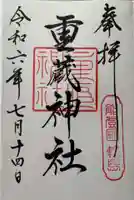 奉拝
重蔵神社
令和六年七月十四日